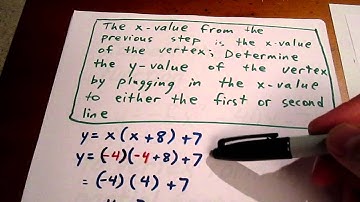 The x-value from the
previous step is the x-value
of the vertex; Determine
the y-value of the vertex
by plugging in the x-value
to either the first or second
line
y = x(x+8)+7
y = (-4)(-4+8)+7
= (-4)(4)+7